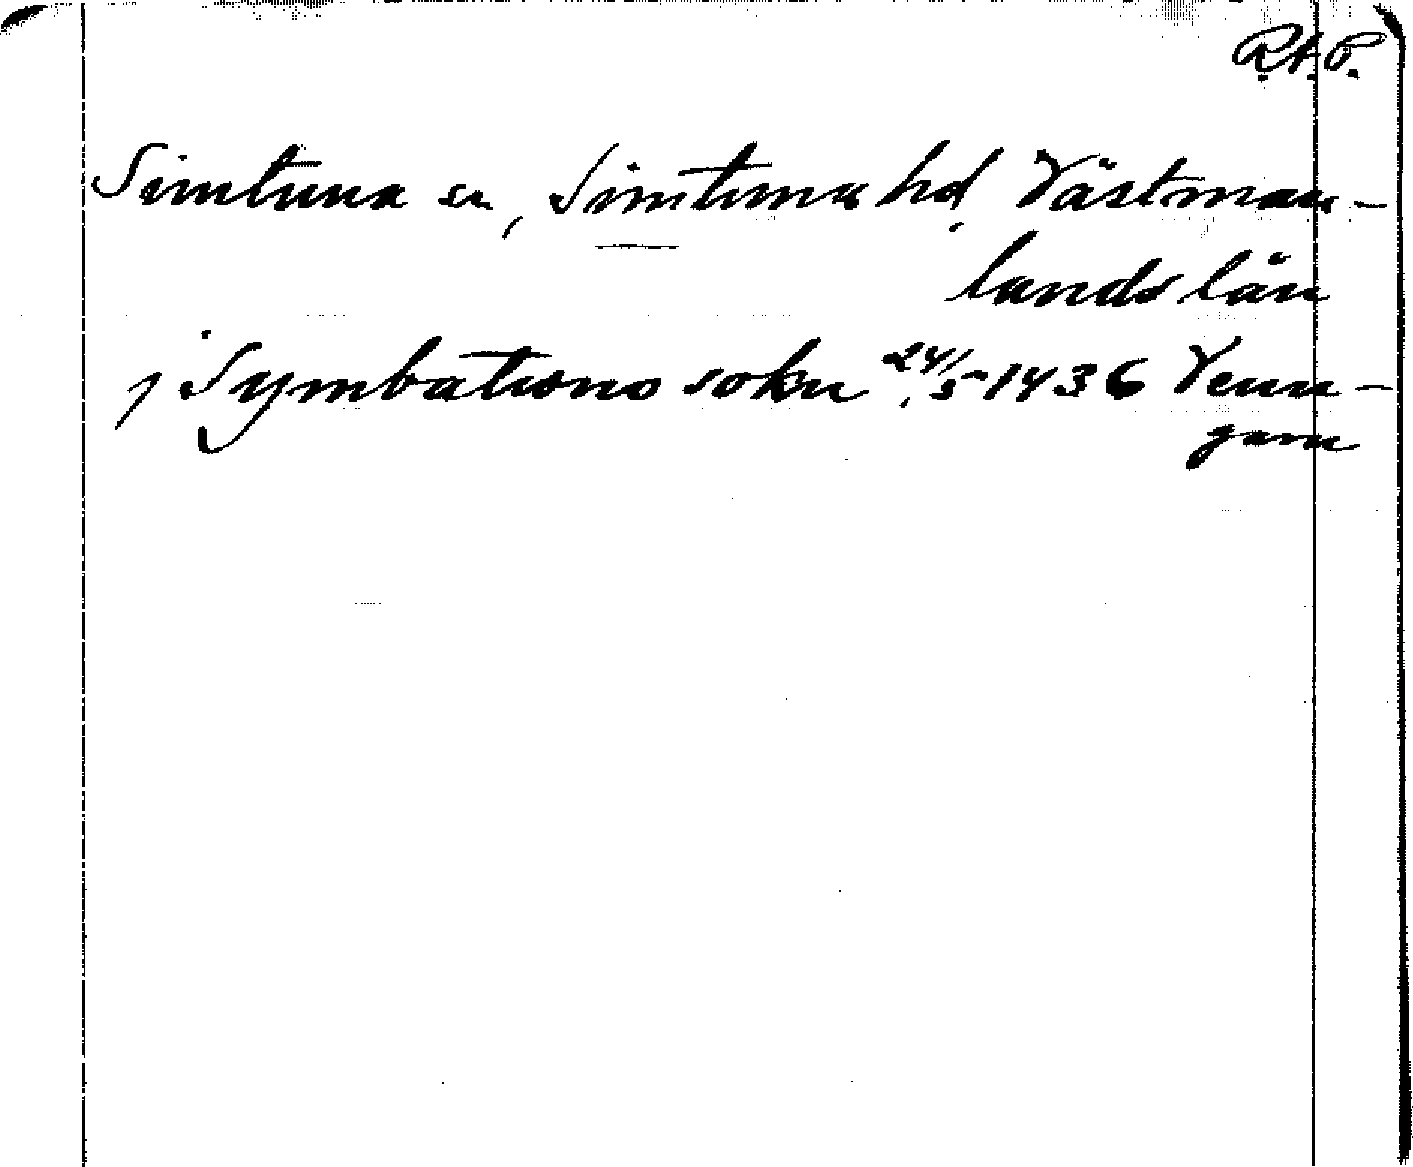 R.A.P.
Simtuna sn, Simtuna hd, Västman-
lands län
j Symbatuno sokn 24/5 1436 Venn-
garn